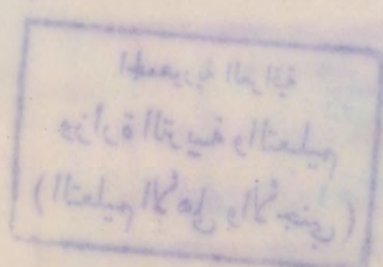 الجمهورية العراقية
وزارة التربية والتعليم
(التعليم الأهلي والأجنبي)